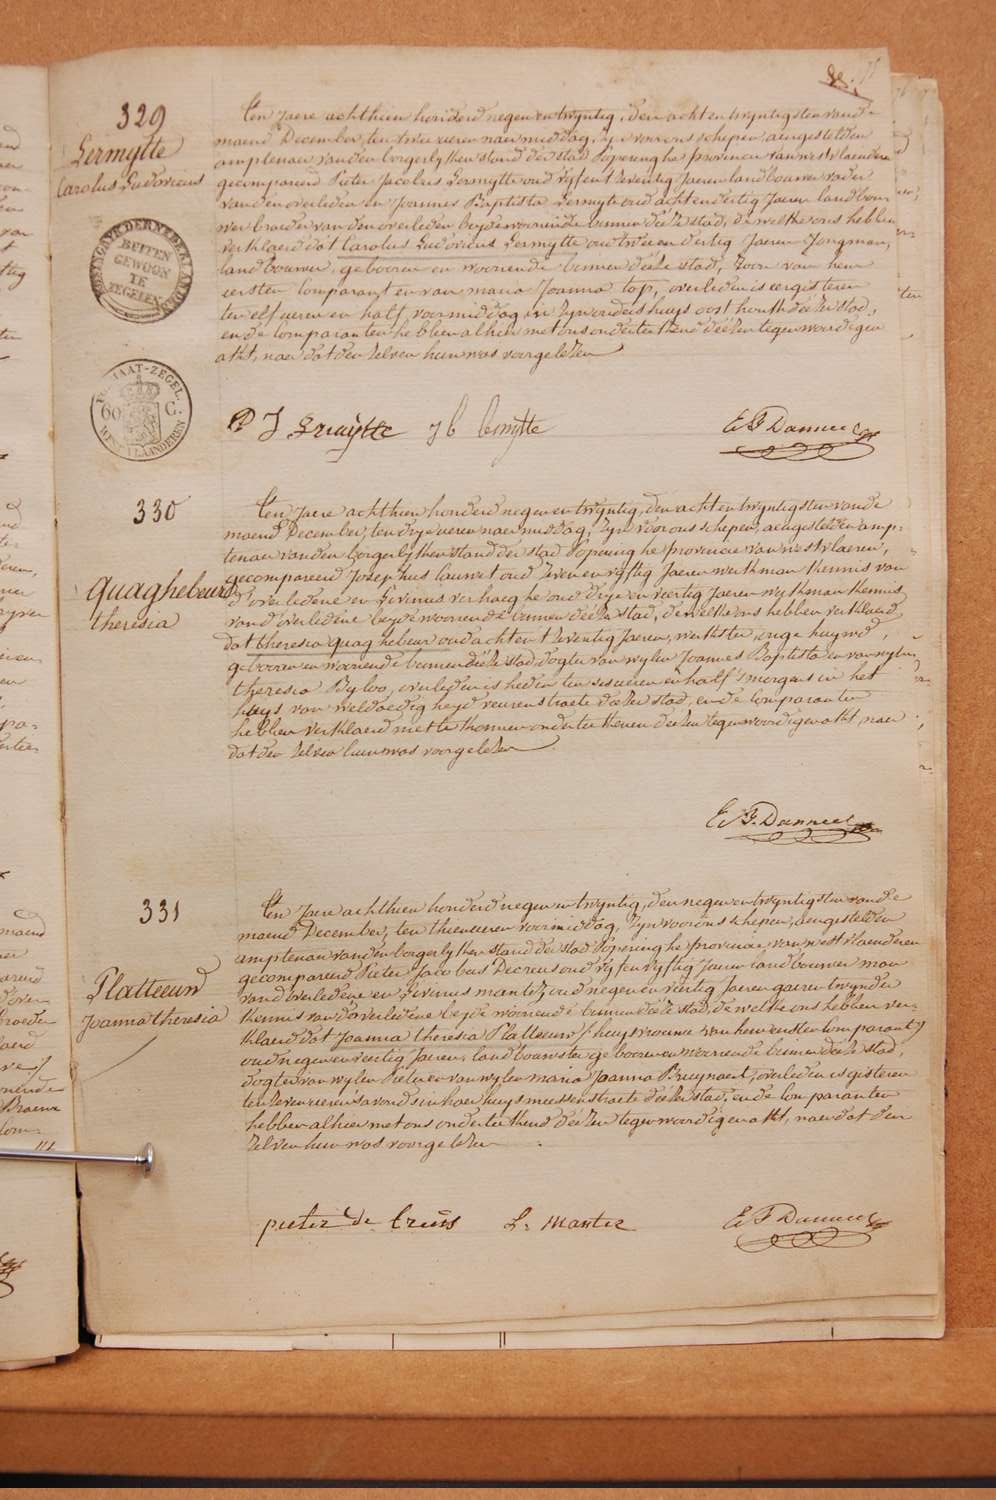 329
Lermytte
Carolus Ludovicus
KONINGRYK DER NEDERLANDEN
BUITEN
GEWOON
TE
ZEGELEN
FORMAAT-ZEGEL
60 C.
WEST-VLAANDEREN
Ten Jaere achthien honderd negen en twyntig, den acht en twyntigsten van de
maend December, ten twee ueren naer middag, zyn voor ons schepen aengestelden
amptenaer van den borgerlyken stand der stad Poperinghe provincie van westvlaenderen
gecompareerd Pieter Jacobus Lermytte oud vyf en tzeventig Jaeren landbouwer vader
van den overleden en Joannes Baptista Lermytte oud acht en dertig Jaeren landbou-
wer broeder van den overleden beyde woonende binnen deéze stad, de welke ons hebben
verklaerd dat Carolus Ludovicus Lermytte oud drie en dertig Jaeren Jongman,
landbouwer, gebooren en woonende binnen deéze stad, zoon van hem
eersten Comparant en van maria Joanna top, overleden is eergisteren
ten elf ueren en half voormiddag in zyn ouders huys oost houk deéze stad,
en de Comparanten hebben alhier met ons onderteekend deézen tegenwoordigen
akt, naer dat den zelven heun was voorgelezen
P J Lermytte J b lermytte E F Danneel
330
Quaghebeur
theresia
Ten Jaere achthien honderd negen en twyntig, den acht en twyntigsten van de
maend December, ten drye ueren naermiddag, zyn voor ons schepen, aengestelden amp-
tenaer van den borgerlyken stand der stad Poperinghe provincie van westvlaenderen,
gecompareerd Josephus Lauwet oud zeven en vyftig Jaeren werkman kennis van
d'overledene en Livinus verhaeghe oud drye en veertig Jaeren werkman kennis
van d'overledene beyde woonende binnen deéze stad, de welke ons hebben verklaerd
dat theresia Quaghebeur oud acht en tzeventig Jaeren, werkster, ongehuywd,
gebooren en woonende binnen deéze stad, dogter van wylen Joannes Baptista en van wylen
theresia Byloo, overleden is heden ten ses ueren en half s'morgens in het
huys van weldaedigheyd veurenstraete deéze stad, en de Comparanten
hebben verklaerd niet te konnen onderteekenen deézen tegenwoordigen akt, naer
dat den zelven heun was voorgelezen
E F Danneel
331
Platteeuw
Joanna theresia
Ten Jaere achthien honderd negen en twyntig, den negen en twyntigsten van de
maend December, ten thien ueren voormiddag, zyn voor ons schepen, aengestelden
amptenaer van den borgerlyken stand der stad Poperinghe provincie van westvlaenderen
gecompareerd Pieter Jacobus Decreus oud vyf en vyftig Jaeren landbouwer man
van d'overledene en Livinus mantez oud negen en veertig Jaeren gaerentwynder
kennis van d'overledene beyde woonende binnen deéze stad, de welke ons hebben ver-
klaerd dat Joanna theresia Platteeuw (huysvrouwe van hem eersten Comparant)
oud negen en veertig Jaeren, landbouwster gebooren en woonende binnen deéze stad,
dogter van wylen Pieter en van wylen maria Joanna Bruynaert, overleden is gisteren
ten zeven ueren s'avonds in haer huys meessenstraete deéze stad, en de Comparanten
hebben alhier met ons onderteekend deézen tegenwoordigen akt, naer dat den
zelven heun was voorgelezen
pieter de Creus L: Mantez E F Danneel